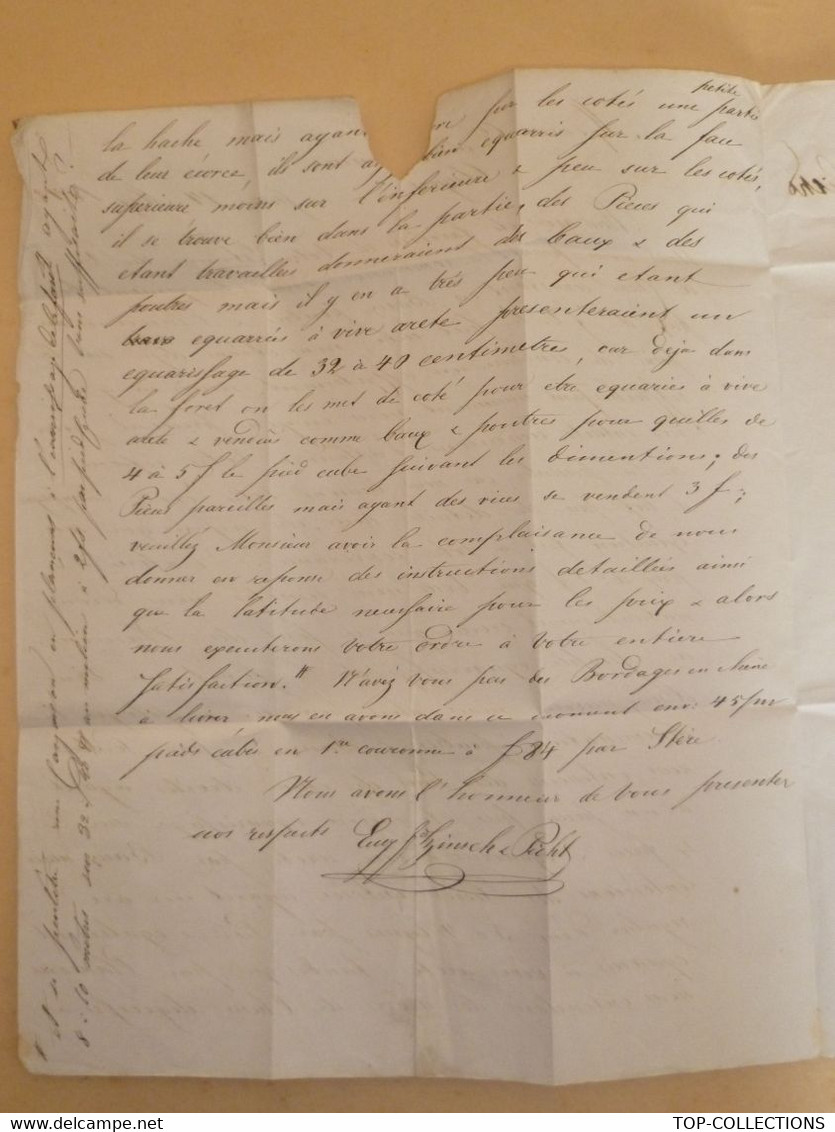 petite
la hache mais ayan sur les cotés une partie
de leur écorce, ils sont bien equarris sur la face
superieure moins sur l'inferieure & peu sur les cotés,
il se trouve bien dans la partie, des Pieces qui
etant travaillés donneraient des baux & des
poutres mais il y en a trés peu qui etant
equarriés à vive arete presenteraient un
equarissage de 32 à 40 centimetres, car deja dans
la foret on les met de coté pour etre equaries à vive
arete & vendus comme baux & poutres pour quilles de
4 à 5 f le pied cube suivant les dimentions; des
Pieces pareilles mais ayant des vices se vendent 3 f;
veuillez Monsieur avoir la complaisance de nous
donner en reponse des instructions detaillés ainsi
que la latitude necessaire pour les prix & alors
nous executerons votre Ordre à votre entiere
satisfaction." N'avez vous pas des Bordages en chêne
à livrer nous en avons dans ce moment env. 45/m
pieds cubes en 1re couronne à f 84 par Stère
Nous avons l'honneur de vous presenter
nos respects
8 à 10 metres sur 32
TOP-COLLECTIONS